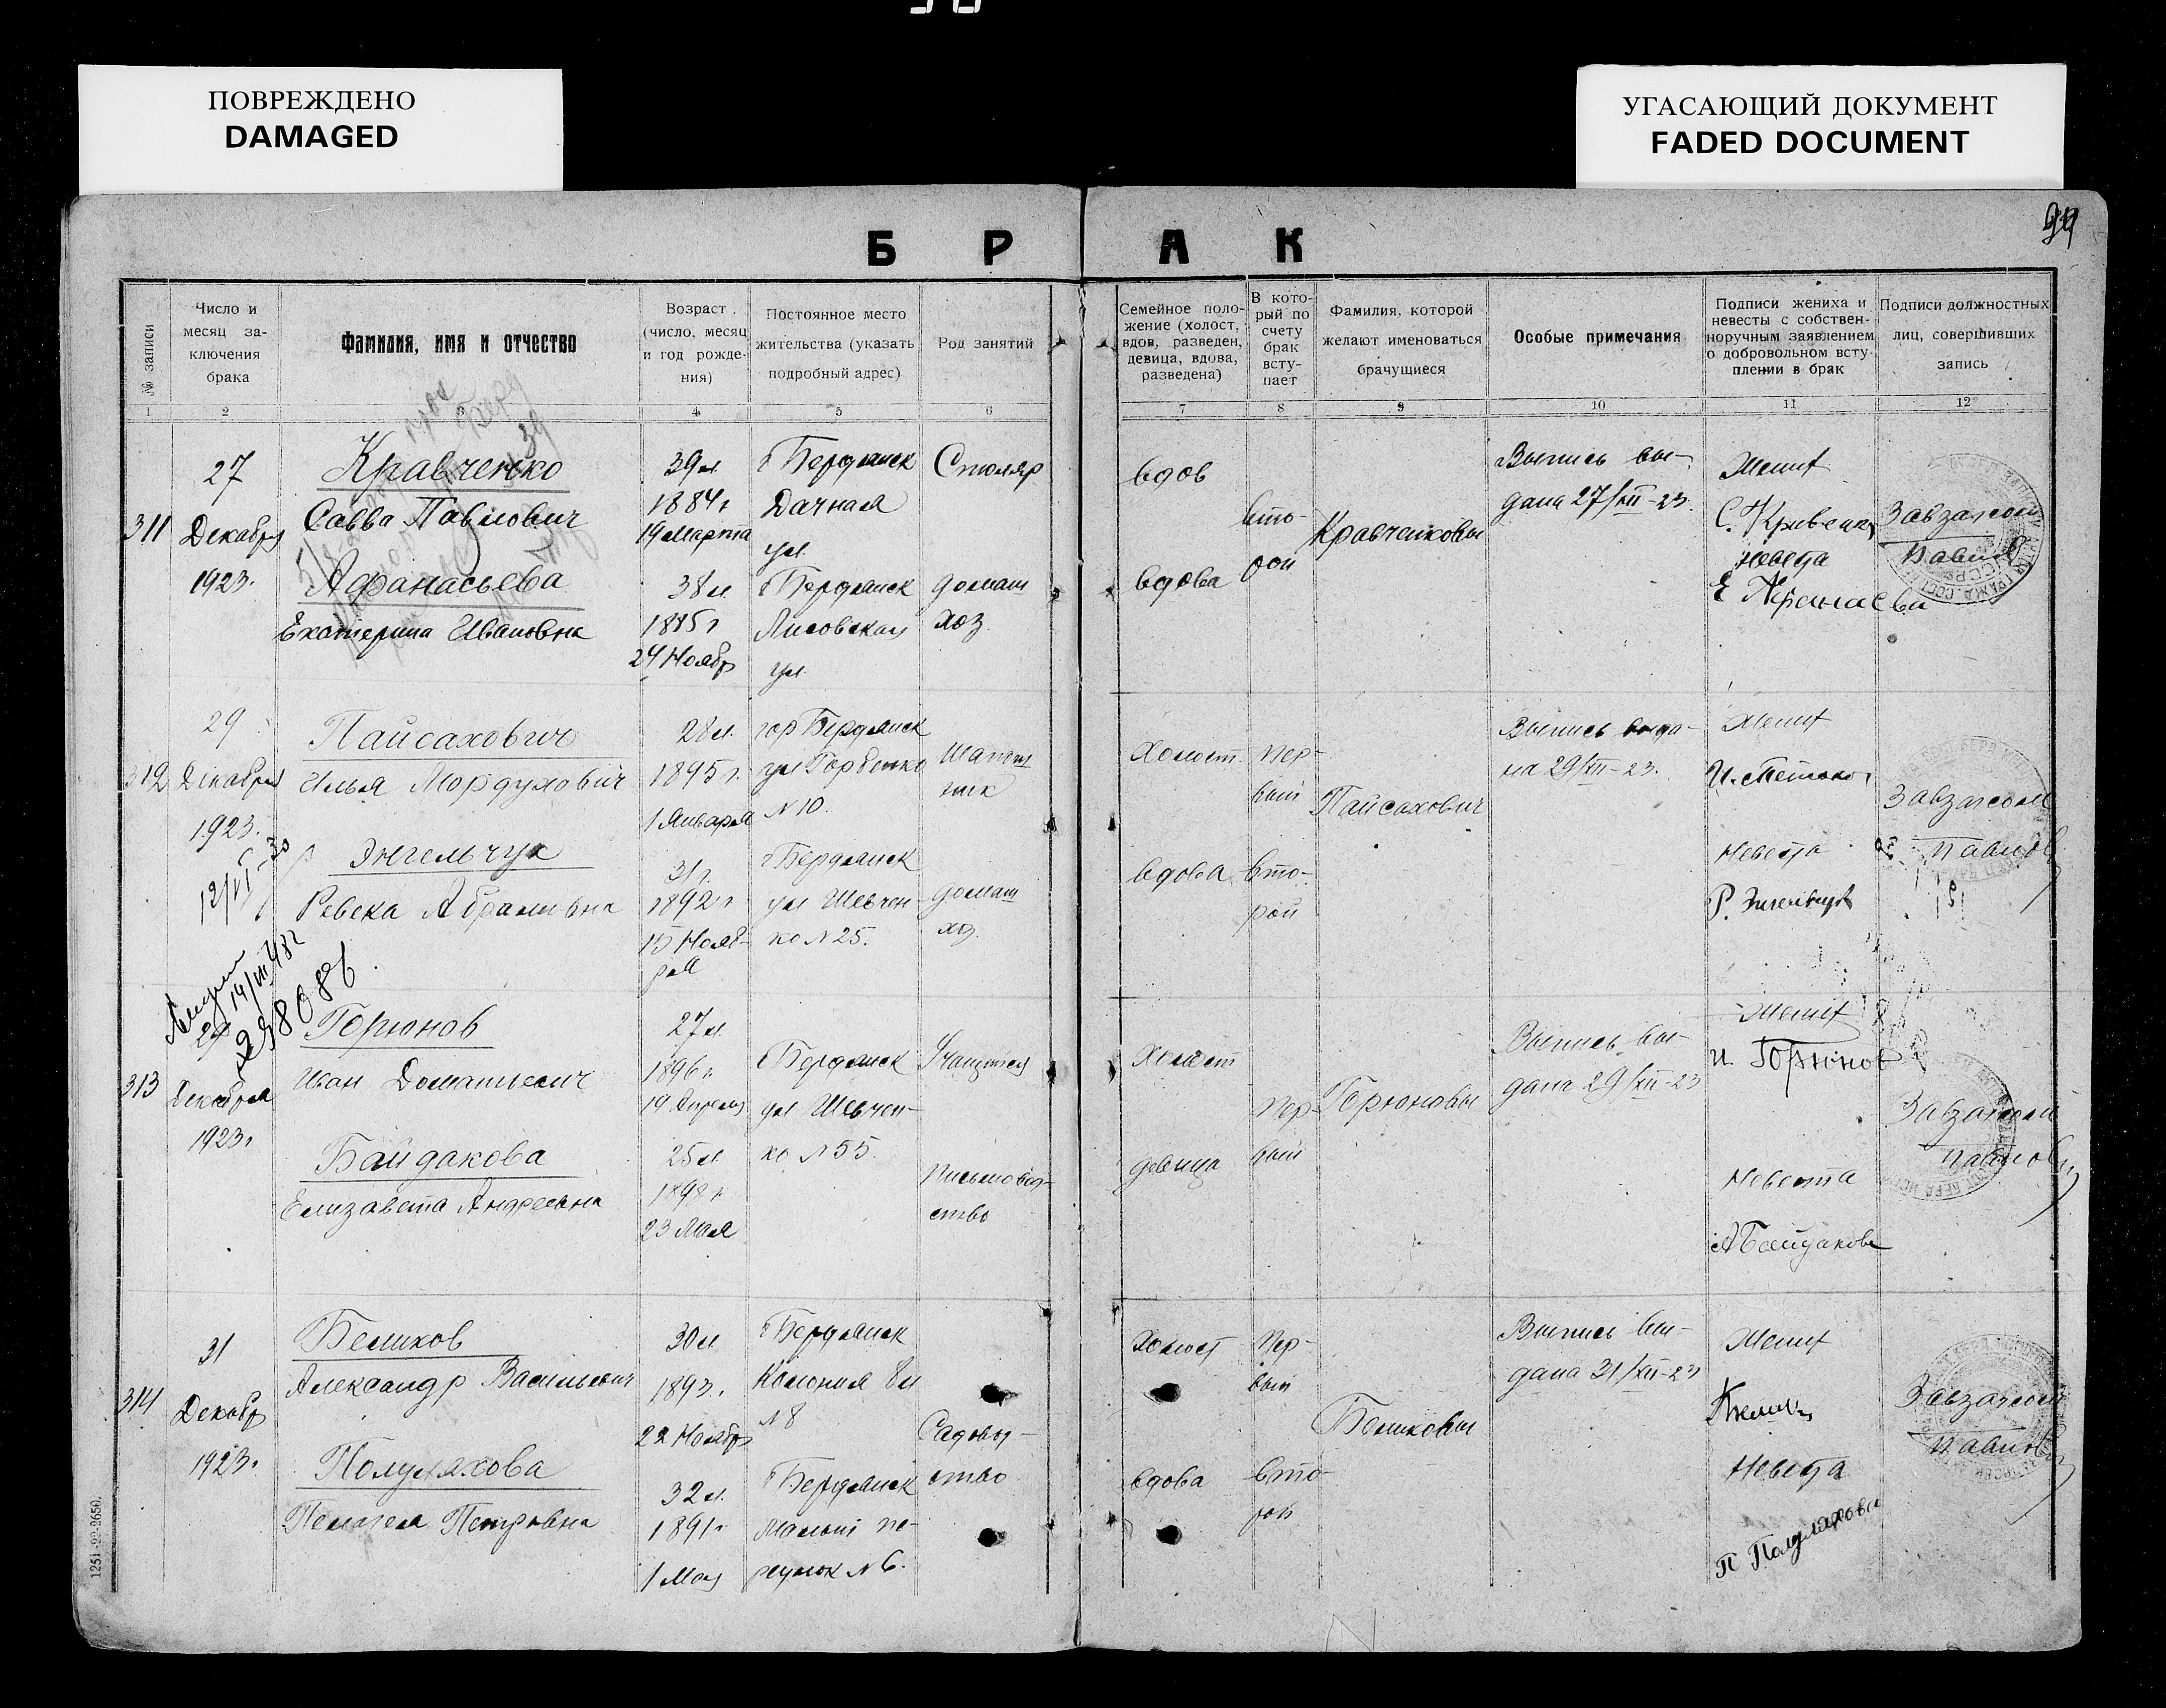 ПОВРЕЖДЕНО
DAMAGED
УГАСАЮЩИЙ ДОКУМЕНТ
FADED DOCUMENT
Б Р А К
№ записи
Число и месяц за-
ключения
брака
Фамилия, имя и отчество
Возраст
(число, месяц
и год рожде-
ния)
Постоянное место
жительства (указать
подробный адрес)
Род занятий
Семейное поло-
жение (холост,
вдов, разведен,
девица, вдова,
разведена)
В кото-
рый по
счету
брак
всту-
пает
Фамилия, которой
желают именоваться
брачущиеся
Особые примечания
Подписи жениха и
невесты с собствен-
норучным заявлением
о добровольном всту-
плении в брак
Подписи должностных
лиц, совершивших
запись
1 2 3 4 5 6 7 8 9 10 11 12
311
27
Декабря
1923.
Кравченко
Савва Павлович
Афанасьева
Екатерина Ивановна
39 л.
1884 г
19 марта
38 л.
1885 г
24 Ноябр
г Бердянск
Дачная
ул
г Бердянск
Лисовская
ул.
Столяр
домаш
хоз.
вдов
вдова
вто-
рой
Кравченковы
Выпись вы-
дана 27/XII-23.
Жених
Невеста
Завзагсом
Павлов
312
29
Декабря
1923.
12/VI-30
Пайсахович
Илья Мордухович
Энгельчук
Ревека Абрамовна
28 л.
1895 г.
1 Января
31 г.
1892 г
15 Нояб-
ря
гор Бердянск
ул Горбенко
№ 10.
г Бердянск
ул Шевчен-
ко № 25.
домаш
хоз.
Холост.
вдова
пер-
вый
вто-
рой
Пайсахович
Выпись выда-
на 29/XII-23.
Жених
Невеста
Завзагсом
Павлов
313
29
Декабря
1923 г
Горюнов
Иван Доматьевич
Байдакова
Елизавета Андреевна
27 л.
1896 г.
19 Апреля
25 л.
1898 г
23 Мая
г Бердянск
ул Шевчен-
ко № 55.
Учащийся
письмовод-
ство
Холост
девица
пер-
вый
Горюновы
Выпись вы-
дана 29/XII-23
Жених
И. Горюнов
Невеста
Байдакова
Завзагсом
Павлов
314
31
Декабр
1923.
Беликов
Александр Васильевич
Полуляхова
Пелагея Петровна
30 л
1893 г.
22 Ноябр
32 л.
1891 г
1 Мая
г Бердянск
Колония
№ 8
г Бердянск
Малый пе-
реулок № 6.
Садовод-
ство
холост
вдова
пер-
вый
вто-
рой
Беликовы
Выпись вы-
дана 31/XII-23
Жених
Невеста
П Полуляхова
Завзагсом
Павлов
1251-22-2650.